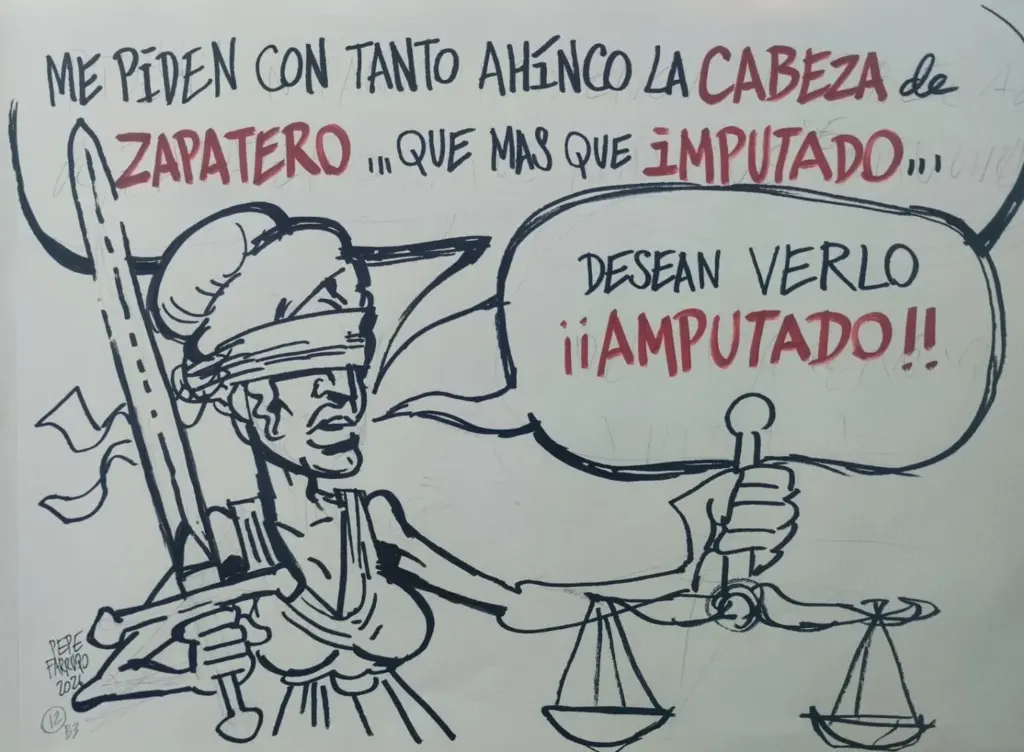 ME PIDEN CON TANTO AHÍNCO LA CABEZA de
ZAPATERO ... QUE MAS QUE iMPUTADO...
DESEAN VERLO
¡¡AMPUTADO!!
PEPE
FARRUQO
2026
12
E3